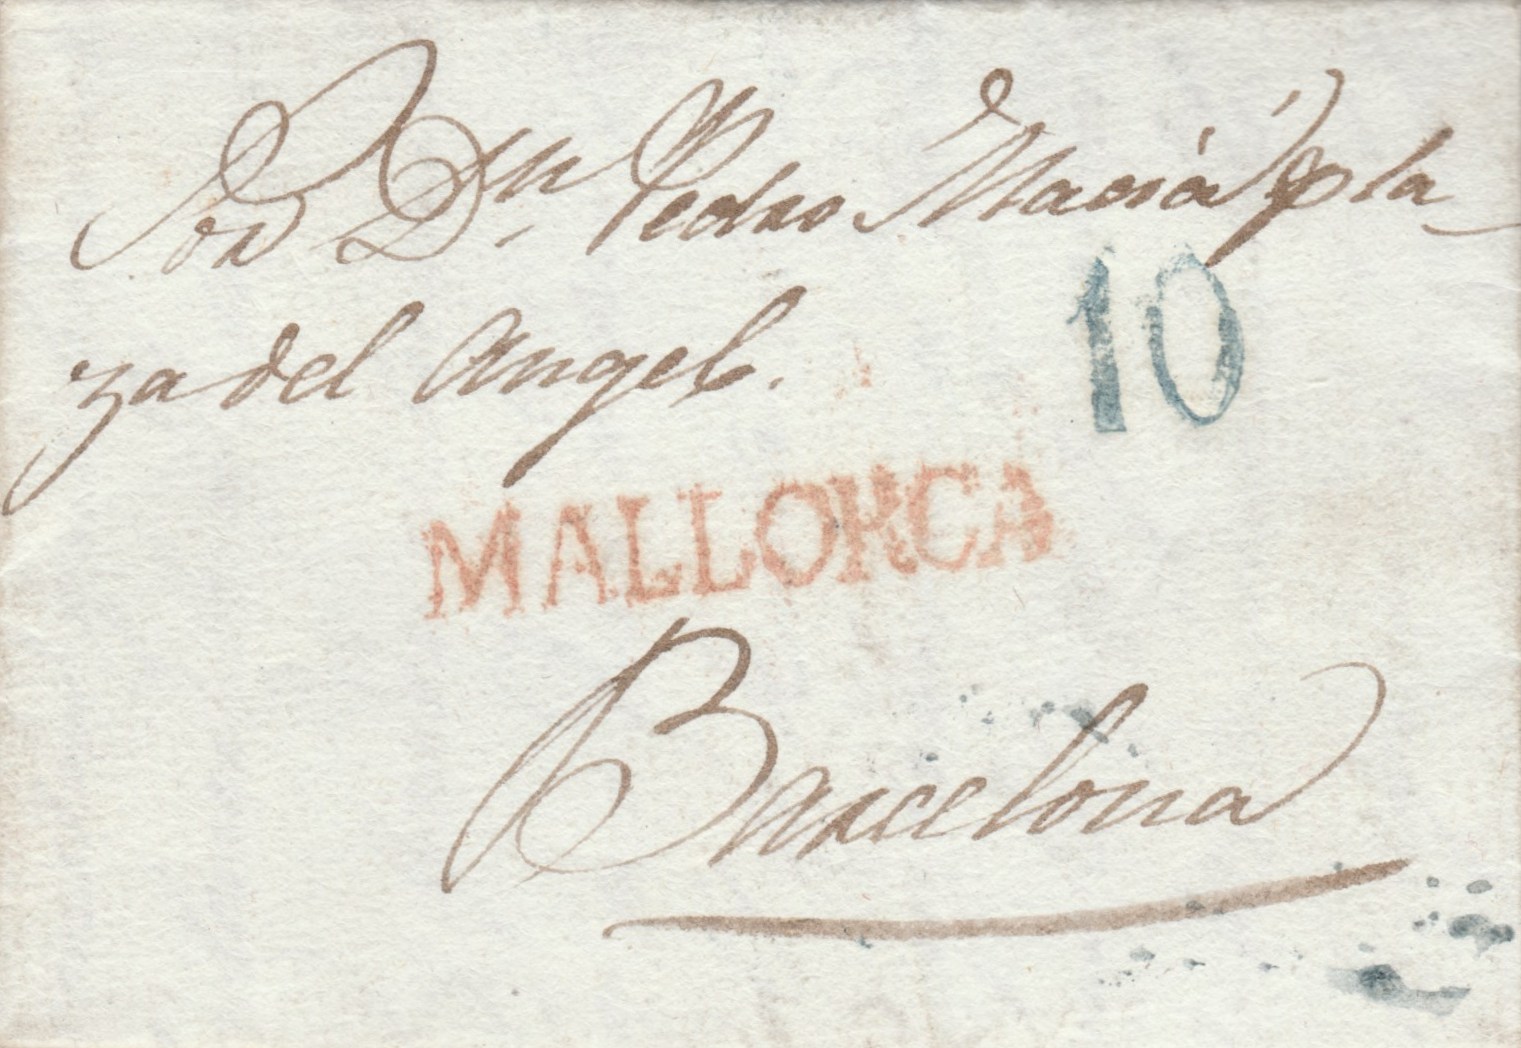 Sor Dn. Pedro Maciá, pla-
za del Angel.
10
MALLORCA
Barcelona